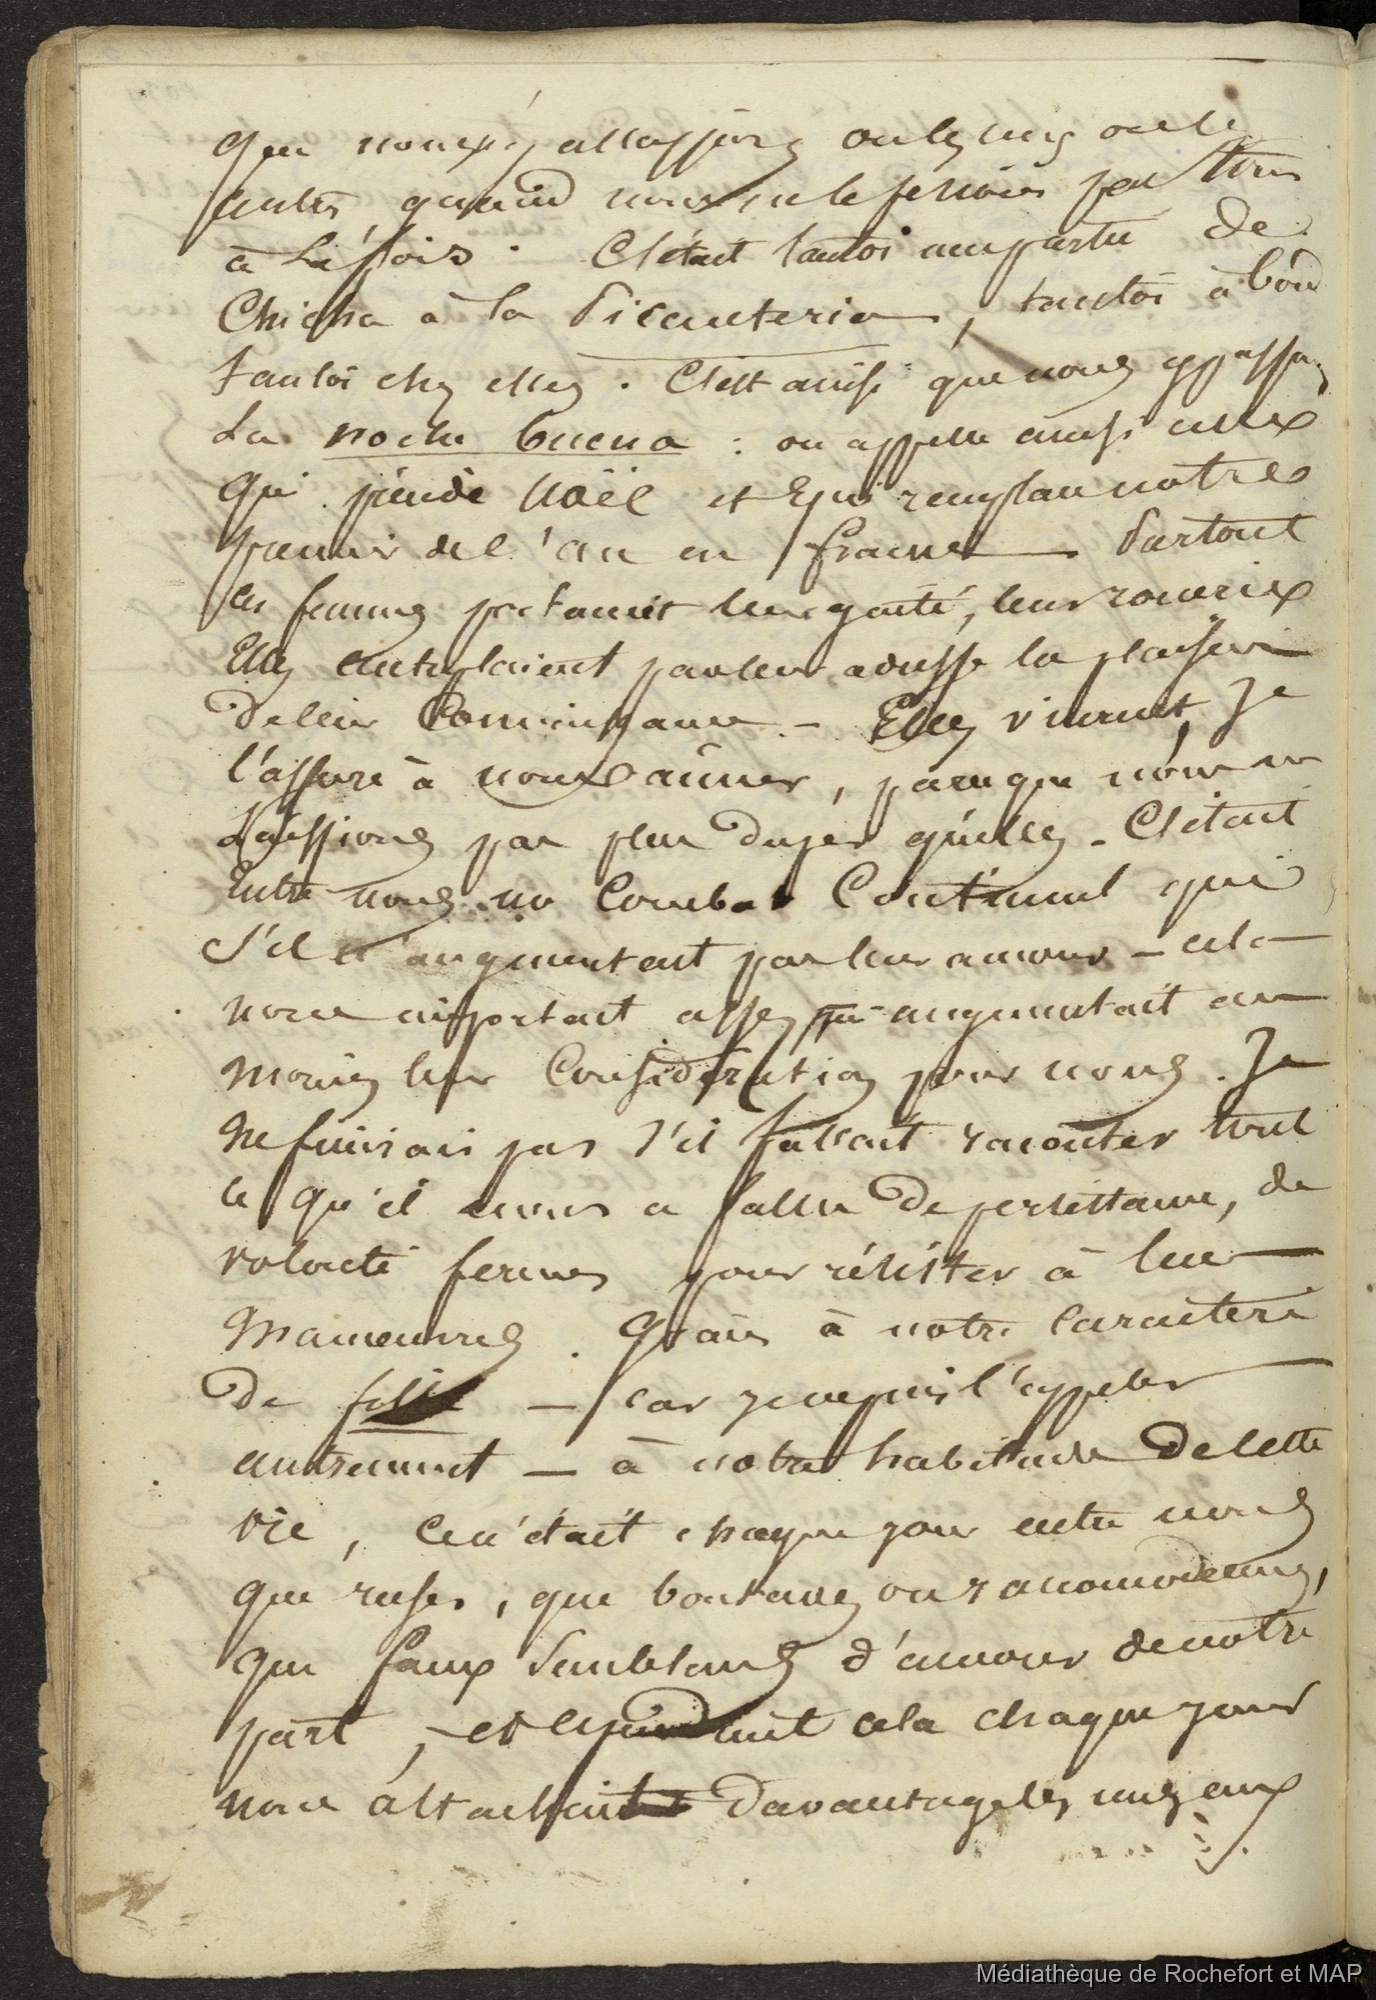 que nous y allassions ou les uns ou les
autres quand nous ne le ferions pas tous
à la fois. C'était tantôt une partie de
Chicha à la Picanteria, tantôt à bord
tantôt chez elles. C'est ainsi que nous y passâmes
La noche buena : on appelle ainsi celle
qui précède Noël et qui remplace notre
premier de l'an en France. Partout
ces femmes portaient leur gaité, leur rouerie
Elles contemplaient par leur adresse la plaisir
de leur Connaissance. - Elles vinrent, Je
l'assure à nous aimer, parce que nous ne
L'aissions pas plus duper qu'elles. C'était
Entre nous un Combat Continuel qui
s'il n'augmentait pas leur amour - cela
nous importait assez peu augmentait au
moins leur Considération pour nous. Je
ne finirais pas s'il fallait raconter tout
ce qu'il nous a fallu de persistance, de
volonté ferme pour résister à leur
Manoeuvres. Grâce à notre caractère
de folie - car je ne puis l'appeler
autrement - à notre habitude de cette
vie, ce n'était chaque jour entre nous
que ruses, que boutades ou racommodements,
que faux semblants d'amour de notre
part, et cependant cela chaque jour
nous attachait davantage les uns aux